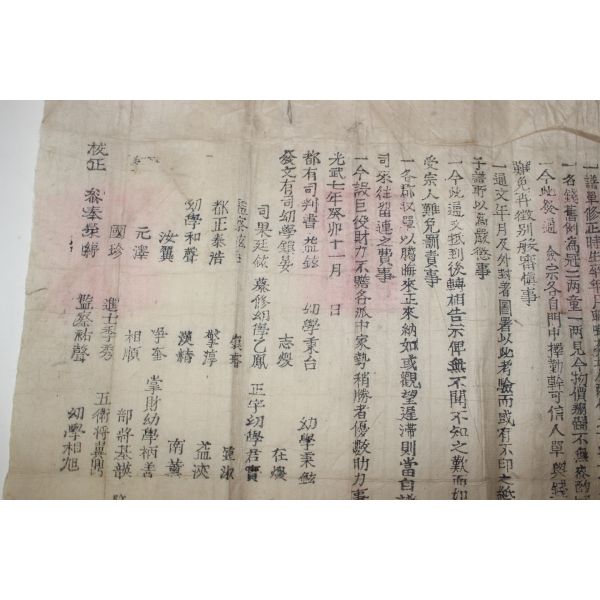 一譜單修正時生
一名錢舊例為冠二兩童一兩見今物價翔騰不無
一今此發通 僉宗各自門中擇勤幹可信人單與錢
難免再徵別般審愼事
一通文年月及外封著圖署以此考驗而或有不印之紙
子譜所以為嚴懲事
一今此通文抵到後轉相告示俾無不聞不知之歎而如
受宗人難免罰責事
一各郡收單以臘晦來正來納如或觀望遲滯則當自譜
司來往留連之費事
一今設巨役財力不贍各派中家勢稍勝者優數助力事
光武七年癸卯十一月 日
都有司判書益鉉 幼學秉台 幼學秉鉉
發文有司幼學鎭晏 志燮 在燮
司果廷鉉 纂修幼學乙鳳 正字幼學君實
監察
都正泰浩 擎淳 益浹
幼學和聲 漢精 南薰
汝翼 學奎 掌財幼學柄書
元澤 相順 部將基謨
國珍 進士季秀 五衛將冀興
校正 參奉 監察祐聲 幼學相旭